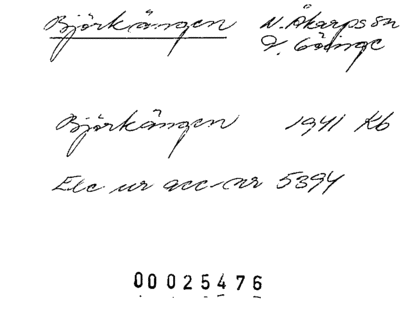 Björkängen N. Åkarps sn
V. Göinge
Björkängen 1941 Kb
Exc ur acc-nr 5394
00025476